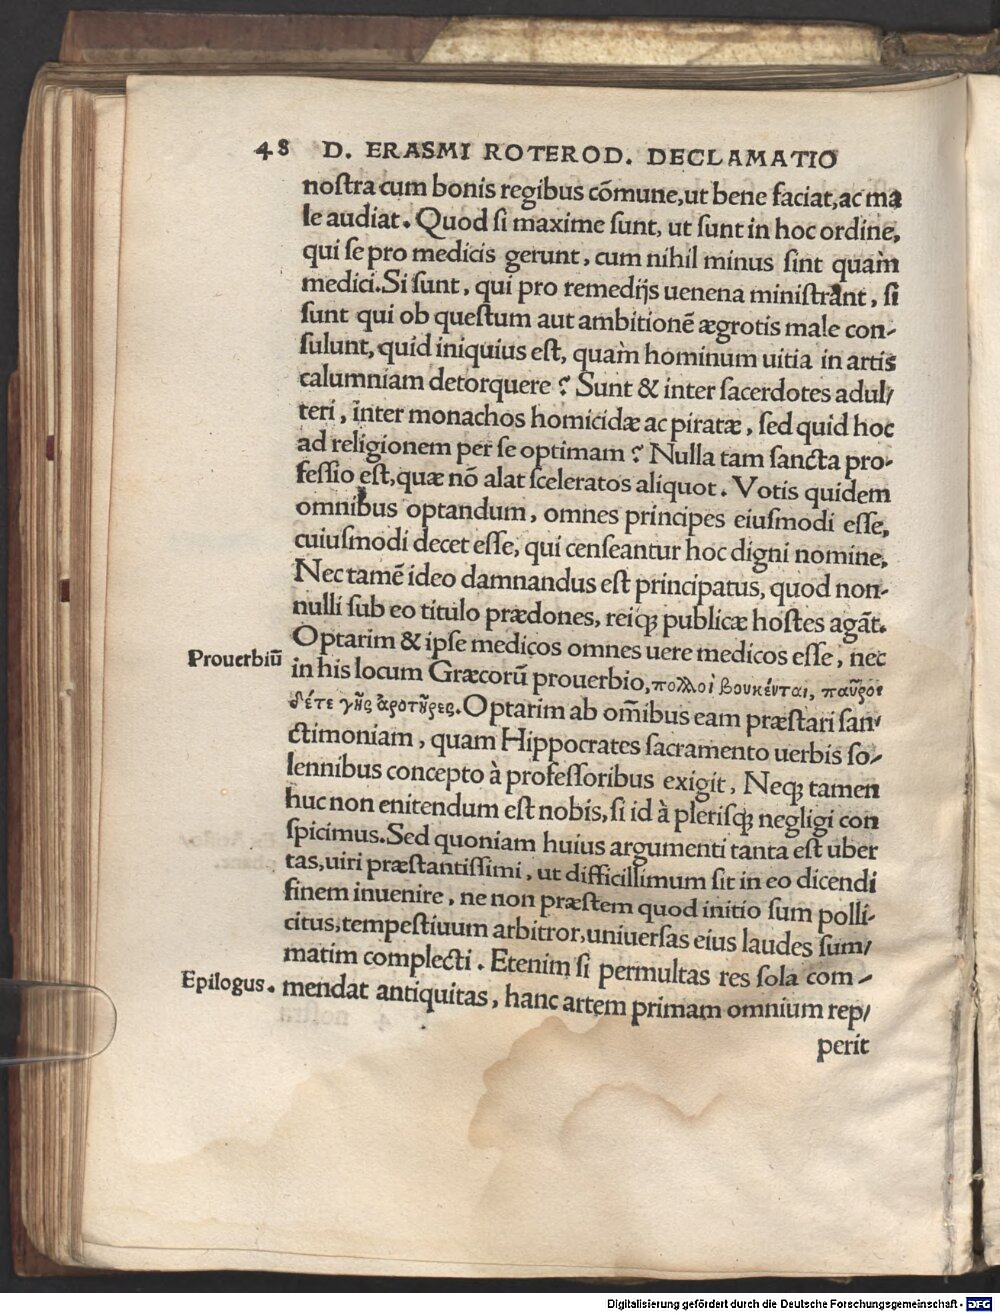 48 D. ERASMI ROTEROD. DECLAMATIO
noſtra cum bonis regibus cõmune,ut bene faciat,ac ma
le audiat. Quod ſi maxime ſunt, ut ſunt in hoc ordine,
qui ſe pro medicis gerunt, cum nihil minus ſint quam
medici.Si ſunt, qui pro remedijs uenena miniſtrant, ſi
ſunt qui ob queſtum aut ambitionẽ ægrotis male con-
ſulunt, quid iniquius eſt, quam hominum uitia in artis
calumniam detorquere ? Sunt & inter ſacerdotes adul/
teri, inter monachos homicidæ ac piratæ, ſed quid hoc
ad religionem per ſe optimam ? Nulla tam ſancta pro-
feſſio eſt,quæ nõ alat ſceleratos aliquot. Votis quidem
omnibus optandum, omnes principes eiuſmodi eſſe,
cuiuſmodi decet eſſe, qui cenſeantur hoc digni nomine,
Nec tamẽ ideo damnandus eſt principatus, quod non-
nulli ſub eo titulo prædones, reiqꝫ publicæ hoſtes agãt.
Optarim & ipſe medicos omnes uere medicos eſſe, nec
Prouerbiũ
in his locum Græcorũ prouerbio, πολλοὶ βουκένται, παῦροι
δέτε γῆς ἀροτῆρες. Optarim ab om̃ibus eam præſtari ſan/
ctimoniam, quam Hippocrates ſacramento uerbis ſo-
lennibus concepto à profeſſoribus exigit, Neqꝫ tamen
huc non enitendum eſt nobis, ſi id à pleriſqꝫ negligi con
ſpicimus.Sed quoniam huius argumenti tanta eſt uber
tas,uiri præſtantiſſimi, ut difficillimum ſit in eo dicendi
finem inuenire, ne non præſtem quod initio ſum polli-
citus,tempeſtiuum arbitror,uniuerſas eius laudes ſum/
matim complecti. Etenim ſi permultas res ſola com-
Epilogus.
mendat antiquitas, hanc artem primam omnium rep/
perit
Digitalisierung gefördert durch die Deutsche Forschungsgemeinschaft - DFG